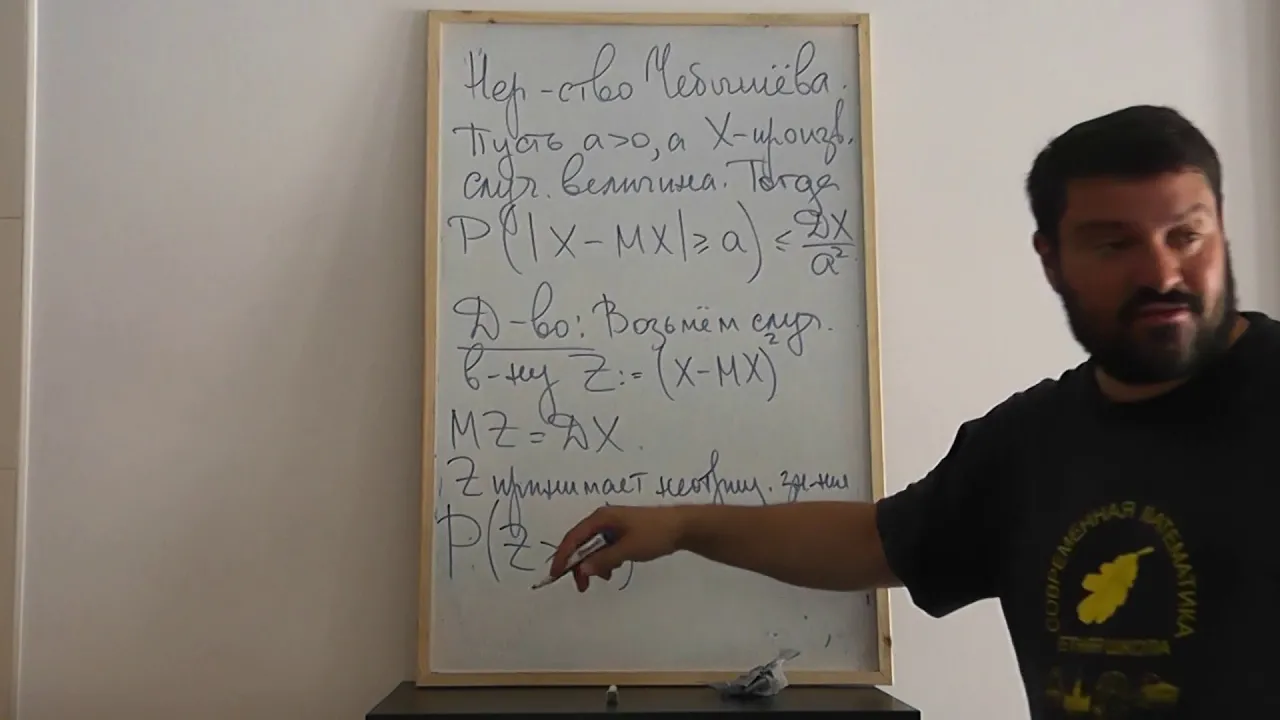 Нер-ство Чебышёва.
Пусть a>0, а X-произв.
случ. величина. Тогда
P(|X-MX|≥a)≤DX/a²
Д-во: Возьмём случ.
в-ну Z:=(X-MX)²
MZ=DX.
Z принимает неотриц. зн-ния
P(Z
СОВРЕМЕННАЯ МАТЕМАТИКА